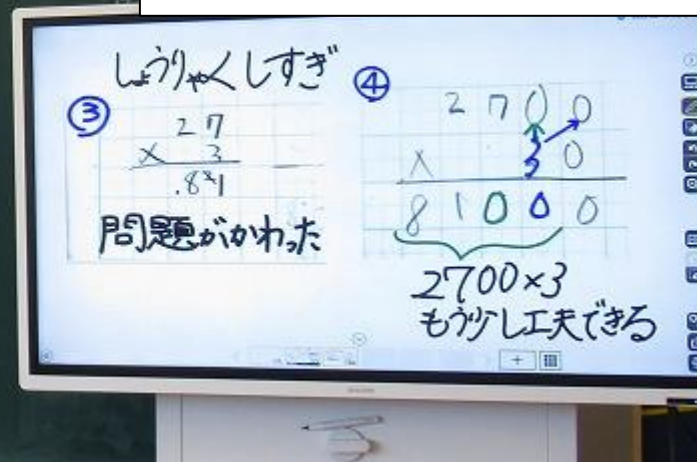 しょうりゃくしすぎ
③
27
× 3
81
問題がかわった
④
2700
× 30
81000
2700×3
もう少し工夫できる